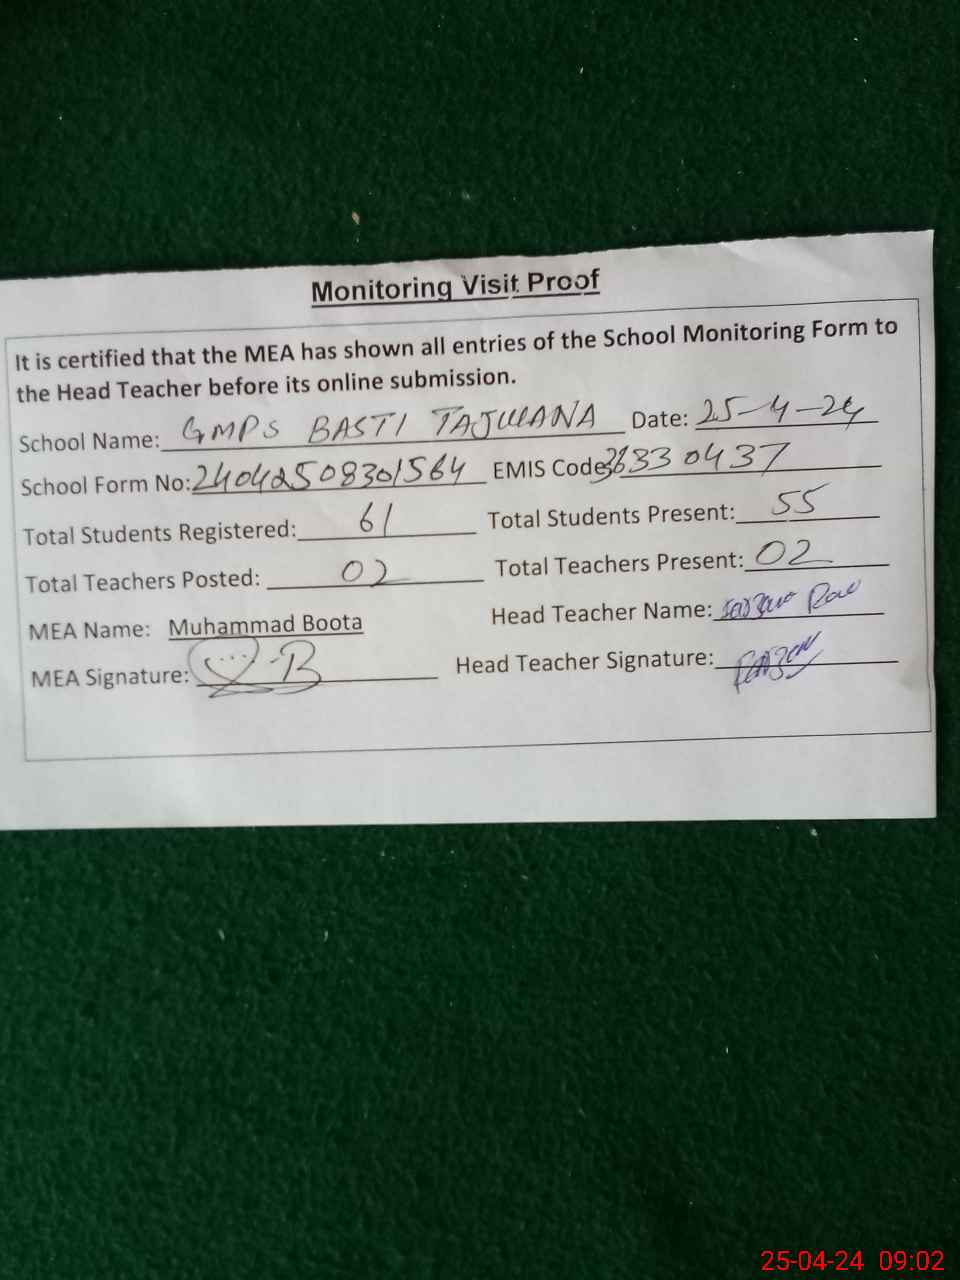 Monitoring Visit Proof
It is certified that the MEA has shown all entries of the School Monitoring Form to
the Head Teacher before its online submission.
School Name: GMPS BASTI TAJWANA Date: 25-4-24
School Form No: 24042508301564 EMIS Code 36330437
Total Students Registered: 61 Total Students Present: 55
Total Teachers Posted: 02 Total Teachers Present: 02
MEA Name: Muhammad Boota Head Teacher Name:
MEA Signature: Head Teacher Signature:
25-04-24 09:02